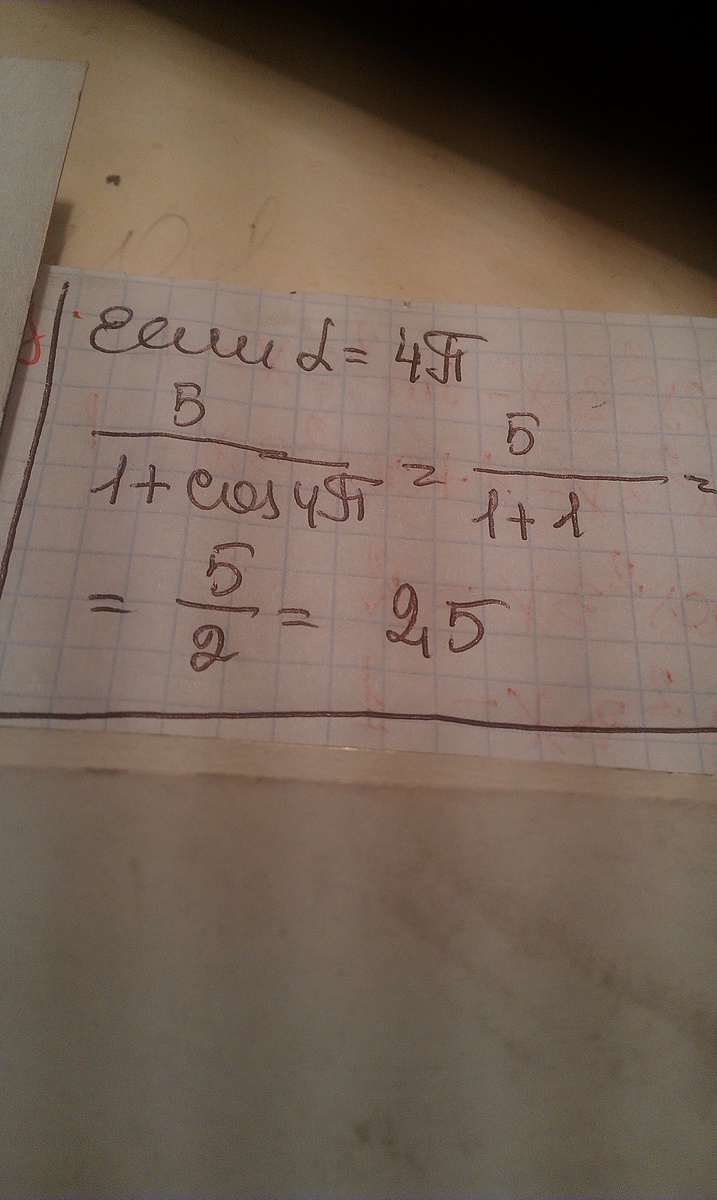 Если α = 4π
5/(1 + cos 4π) = 5/(1 + 1) =
= 5/2 = 2,5